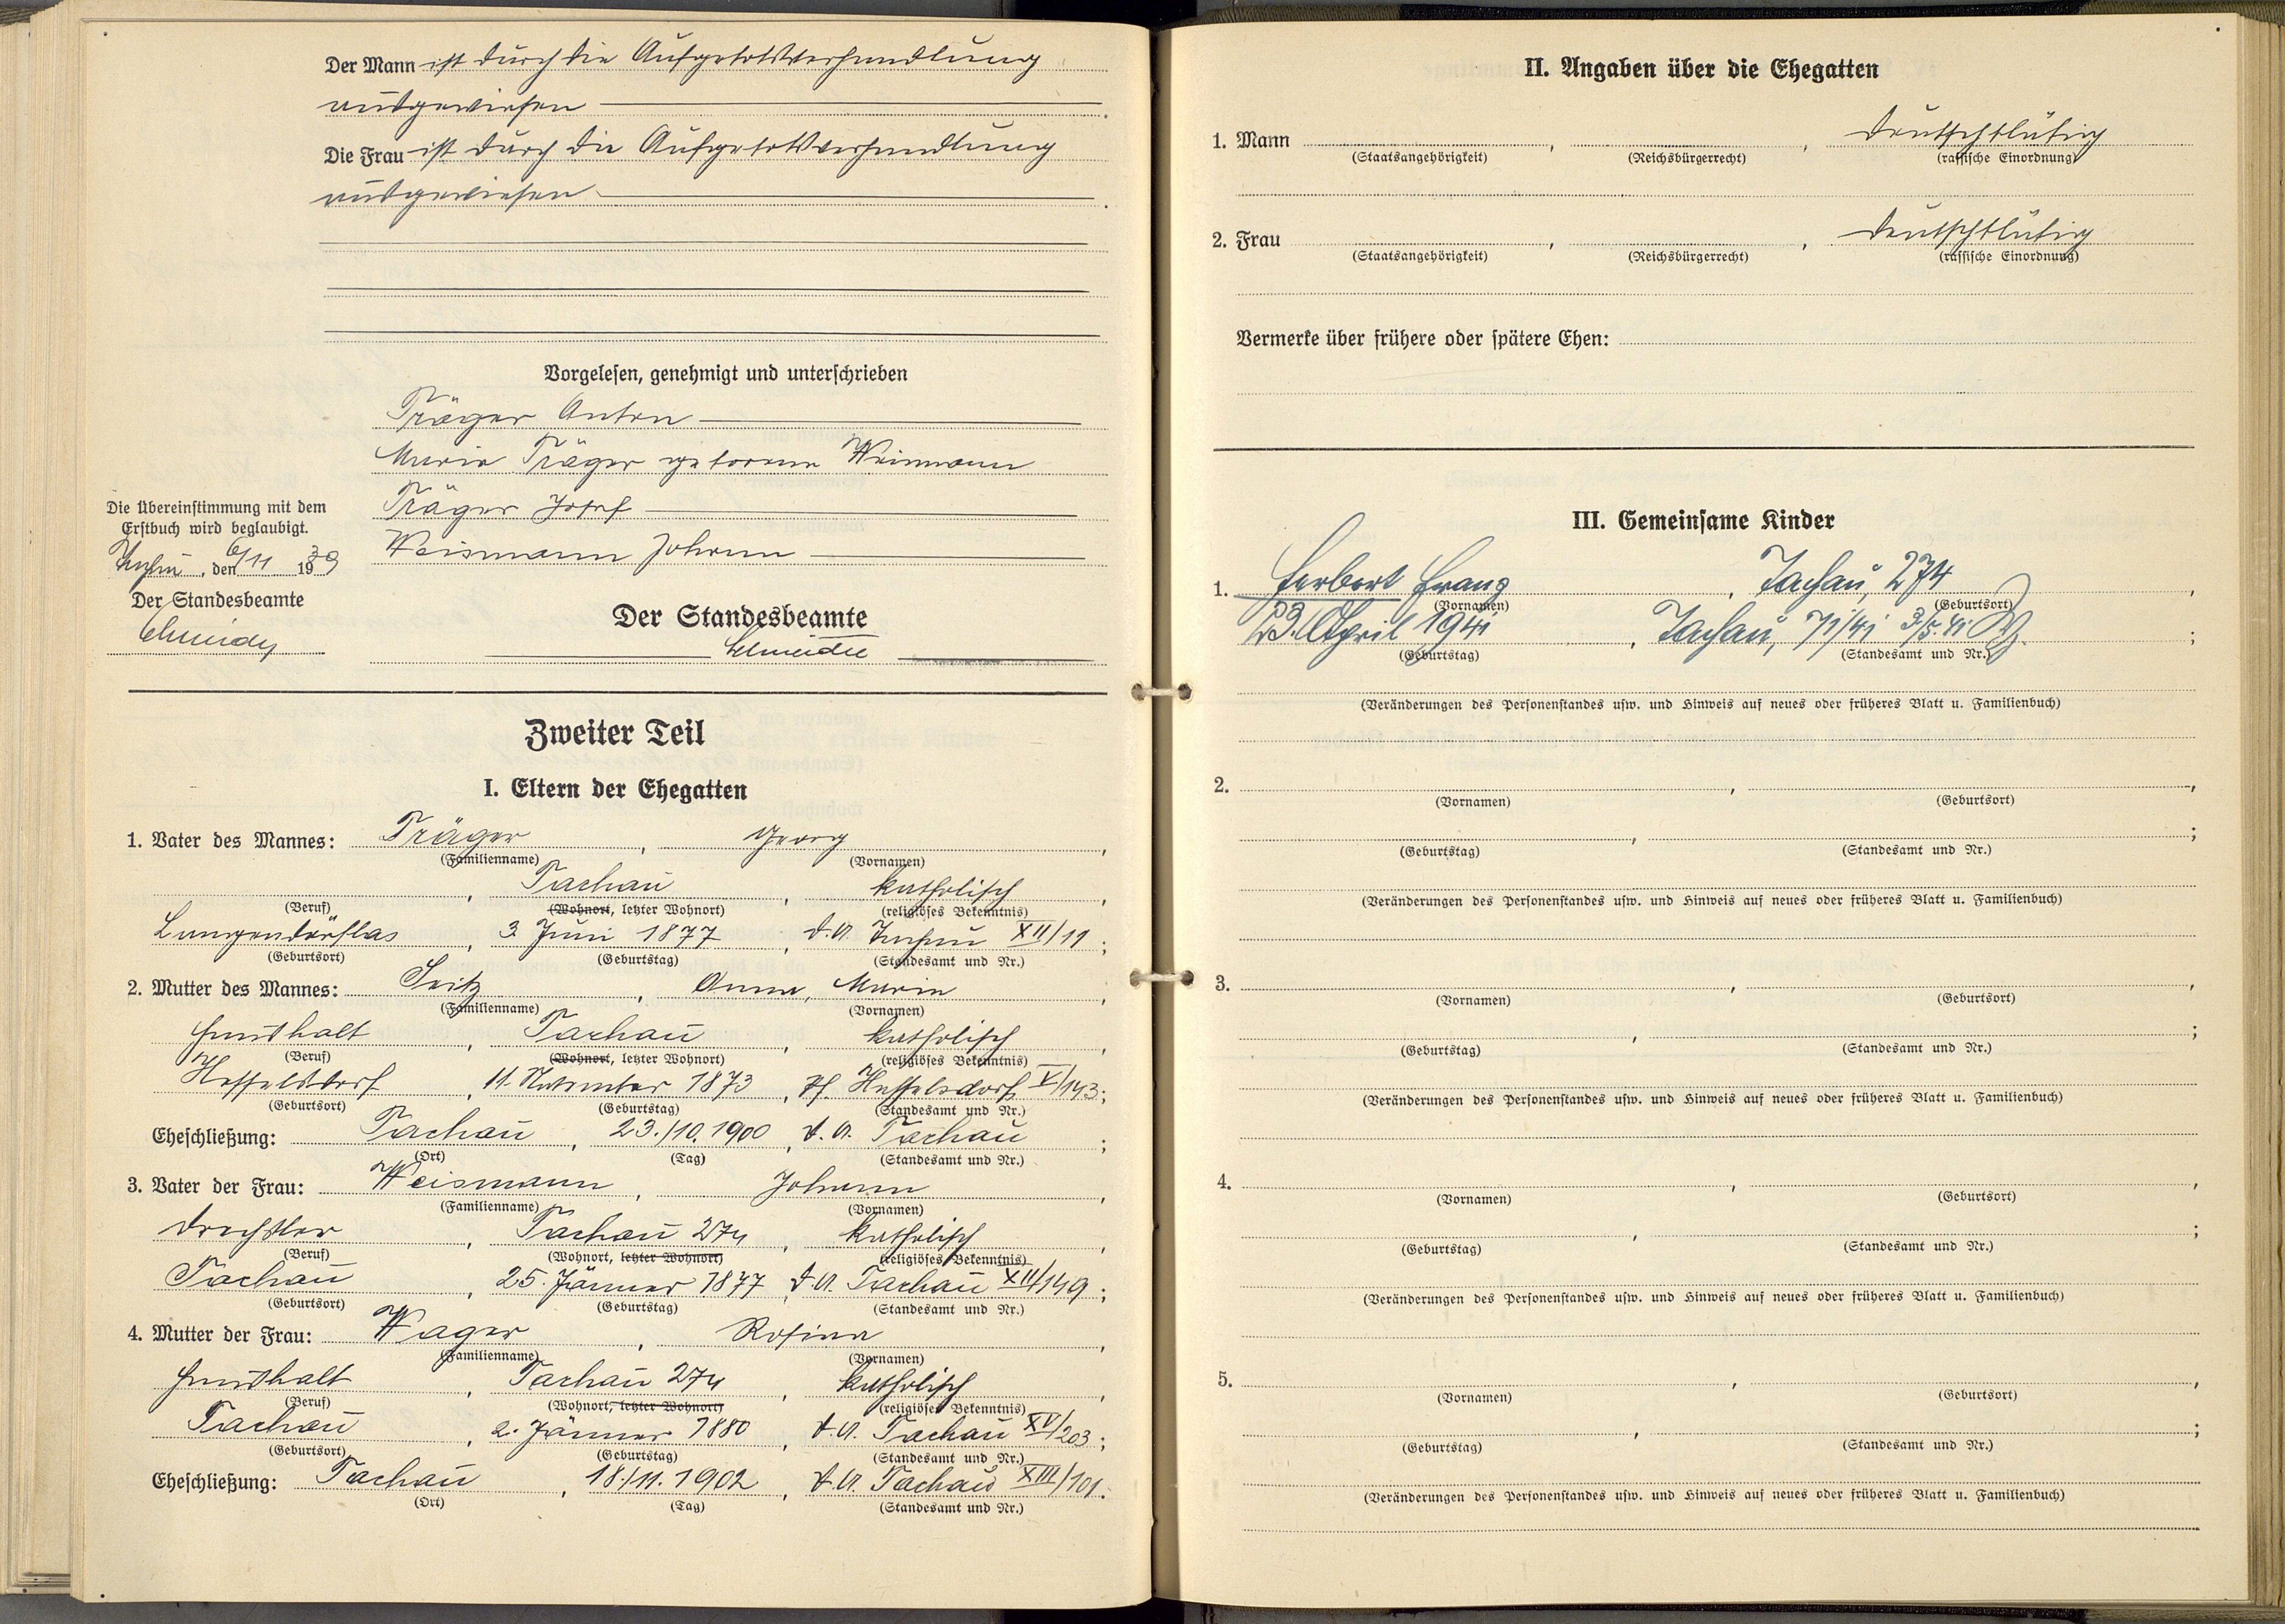 Der Mann ist durch die Aufgebotsverhandlung
ausgewiesen
Die Frau ist durch die Aufgebotsverhandlung
ausgewiesen
Vorgelesen, genehmigt und unterschrieben
Träger Anton
Maria Träger geborene Weismann
Träger Josef
Weismann Johann
Die Übereinstimmung mit dem
Erstbuch wird beglaubigt.
Tachau, den 6/11 1939
Der Standesbeamte
Der Standesbeamte
Schneider
Zweiter Teil
I. Eltern der Ehegatten
1. Vater des Mannes: Träger, Georg,
(Familienname) (Vornamen)
, Tachau, katholisch,
(Beruf) (Wohnort, letzter Wohnort) (religiöses Bekenntnis)
Langendörflas, 3. Juni 1877, d.A. Tachau XII/11;
(Geburtsort) (Geburtstag) (Standesamt und Nr.)
2. Mutter des Mannes: Seitz, Anna, Maria,
(Familienname) (Vornamen)
Haushalt, Tachau, katholisch,
(Beruf) (Wohnort, letzter Wohnort) (religiöses Bekenntnis)
Hesselsdorf, 11. November 1873, Pf. Hesselsdorf V/143;
(Geburtsort) (Geburtstag) (Standesamt und Nr.)
Eheschließung: Tachau, 23./10. 1900, d.A. Tachau;
(Ort) (Tag) (Standesamt und Nr.)
3. Vater der Frau: Weismann, Johann,
(Familienname) (Vornamen)
Drechsler, Tachau 274, katholisch,
(Beruf) (Wohnort, letzter Wohnort) (religiöses Bekenntnis)
Tachau, 25. Jänner 1877, d.A. Tachau XII/149;
(Geburtsort) (Geburtstag) (Standesamt und Nr.)
4. Mutter der Frau: Wager, Rosina,
(Familienname) (Vornamen)
Haushalt, Tachau 274, katholisch,
(Beruf) (Wohnort, letzter Wohnort) (religiöses Bekenntnis)
Tachau, 2. Jänner 1880, d.A. Tachau XV/203;
(Geburtsort) (Geburtstag) (Standesamt und Nr.)
Eheschließung: Tachau, 18./11. 1902, d.A. Tachau XIII/101.
(Ort) (Tag) (Standesamt und Nr.)
II. Angaben über die Ehegatten
1. Mann , , deutschblütig
(Staatsangehörigkeit) (Reichsbürgerrecht) (rassische Einordnung)
2. Frau , , deutschblütig
(Staatsangehörigkeit) (Reichsbürgerrecht) (rassische Einordnung)
Vermerke über frühere oder spätere Ehen:
III. Gemeinsame Kinder
1. Herbert Franz, Tachau, 274,
(Vornamen) (Geburtsort)
23. April 1941, Tachau, 71/41 3/5. 41;
(Geburtstag) (Standesamt und Nr.)
(Veränderungen des Personenstandes usw. und Hinweis auf neues oder früheres Blatt u. Familienbuch)
2. , ,
(Vornamen) (Geburtsort)
, ;
(Geburtstag) (Standesamt und Nr.)
(Veränderungen des Personenstandes usw. und Hinweis auf neues oder früheres Blatt u. Familienbuch)
3. , ,
(Vornamen) (Geburtsort)
, ;
(Geburtstag) (Standesamt und Nr.)
(Veränderungen des Personenstandes usw. und Hinweis auf neues oder früheres Blatt u. Familienbuch)
4. , ,
(Vornamen) (Geburtsort)
, ;
(Geburtstag) (Standesamt und Nr.)
(Veränderungen des Personenstandes usw. und Hinweis auf neues oder früheres Blatt u. Familienbuch)
5. , ,
(Vornamen) (Geburtsort)
, ;
(Geburtstag) (Standesamt und Nr.)
(Veränderungen des Personenstandes usw. und Hinweis auf neues oder früheres Blatt u. Familienbuch)